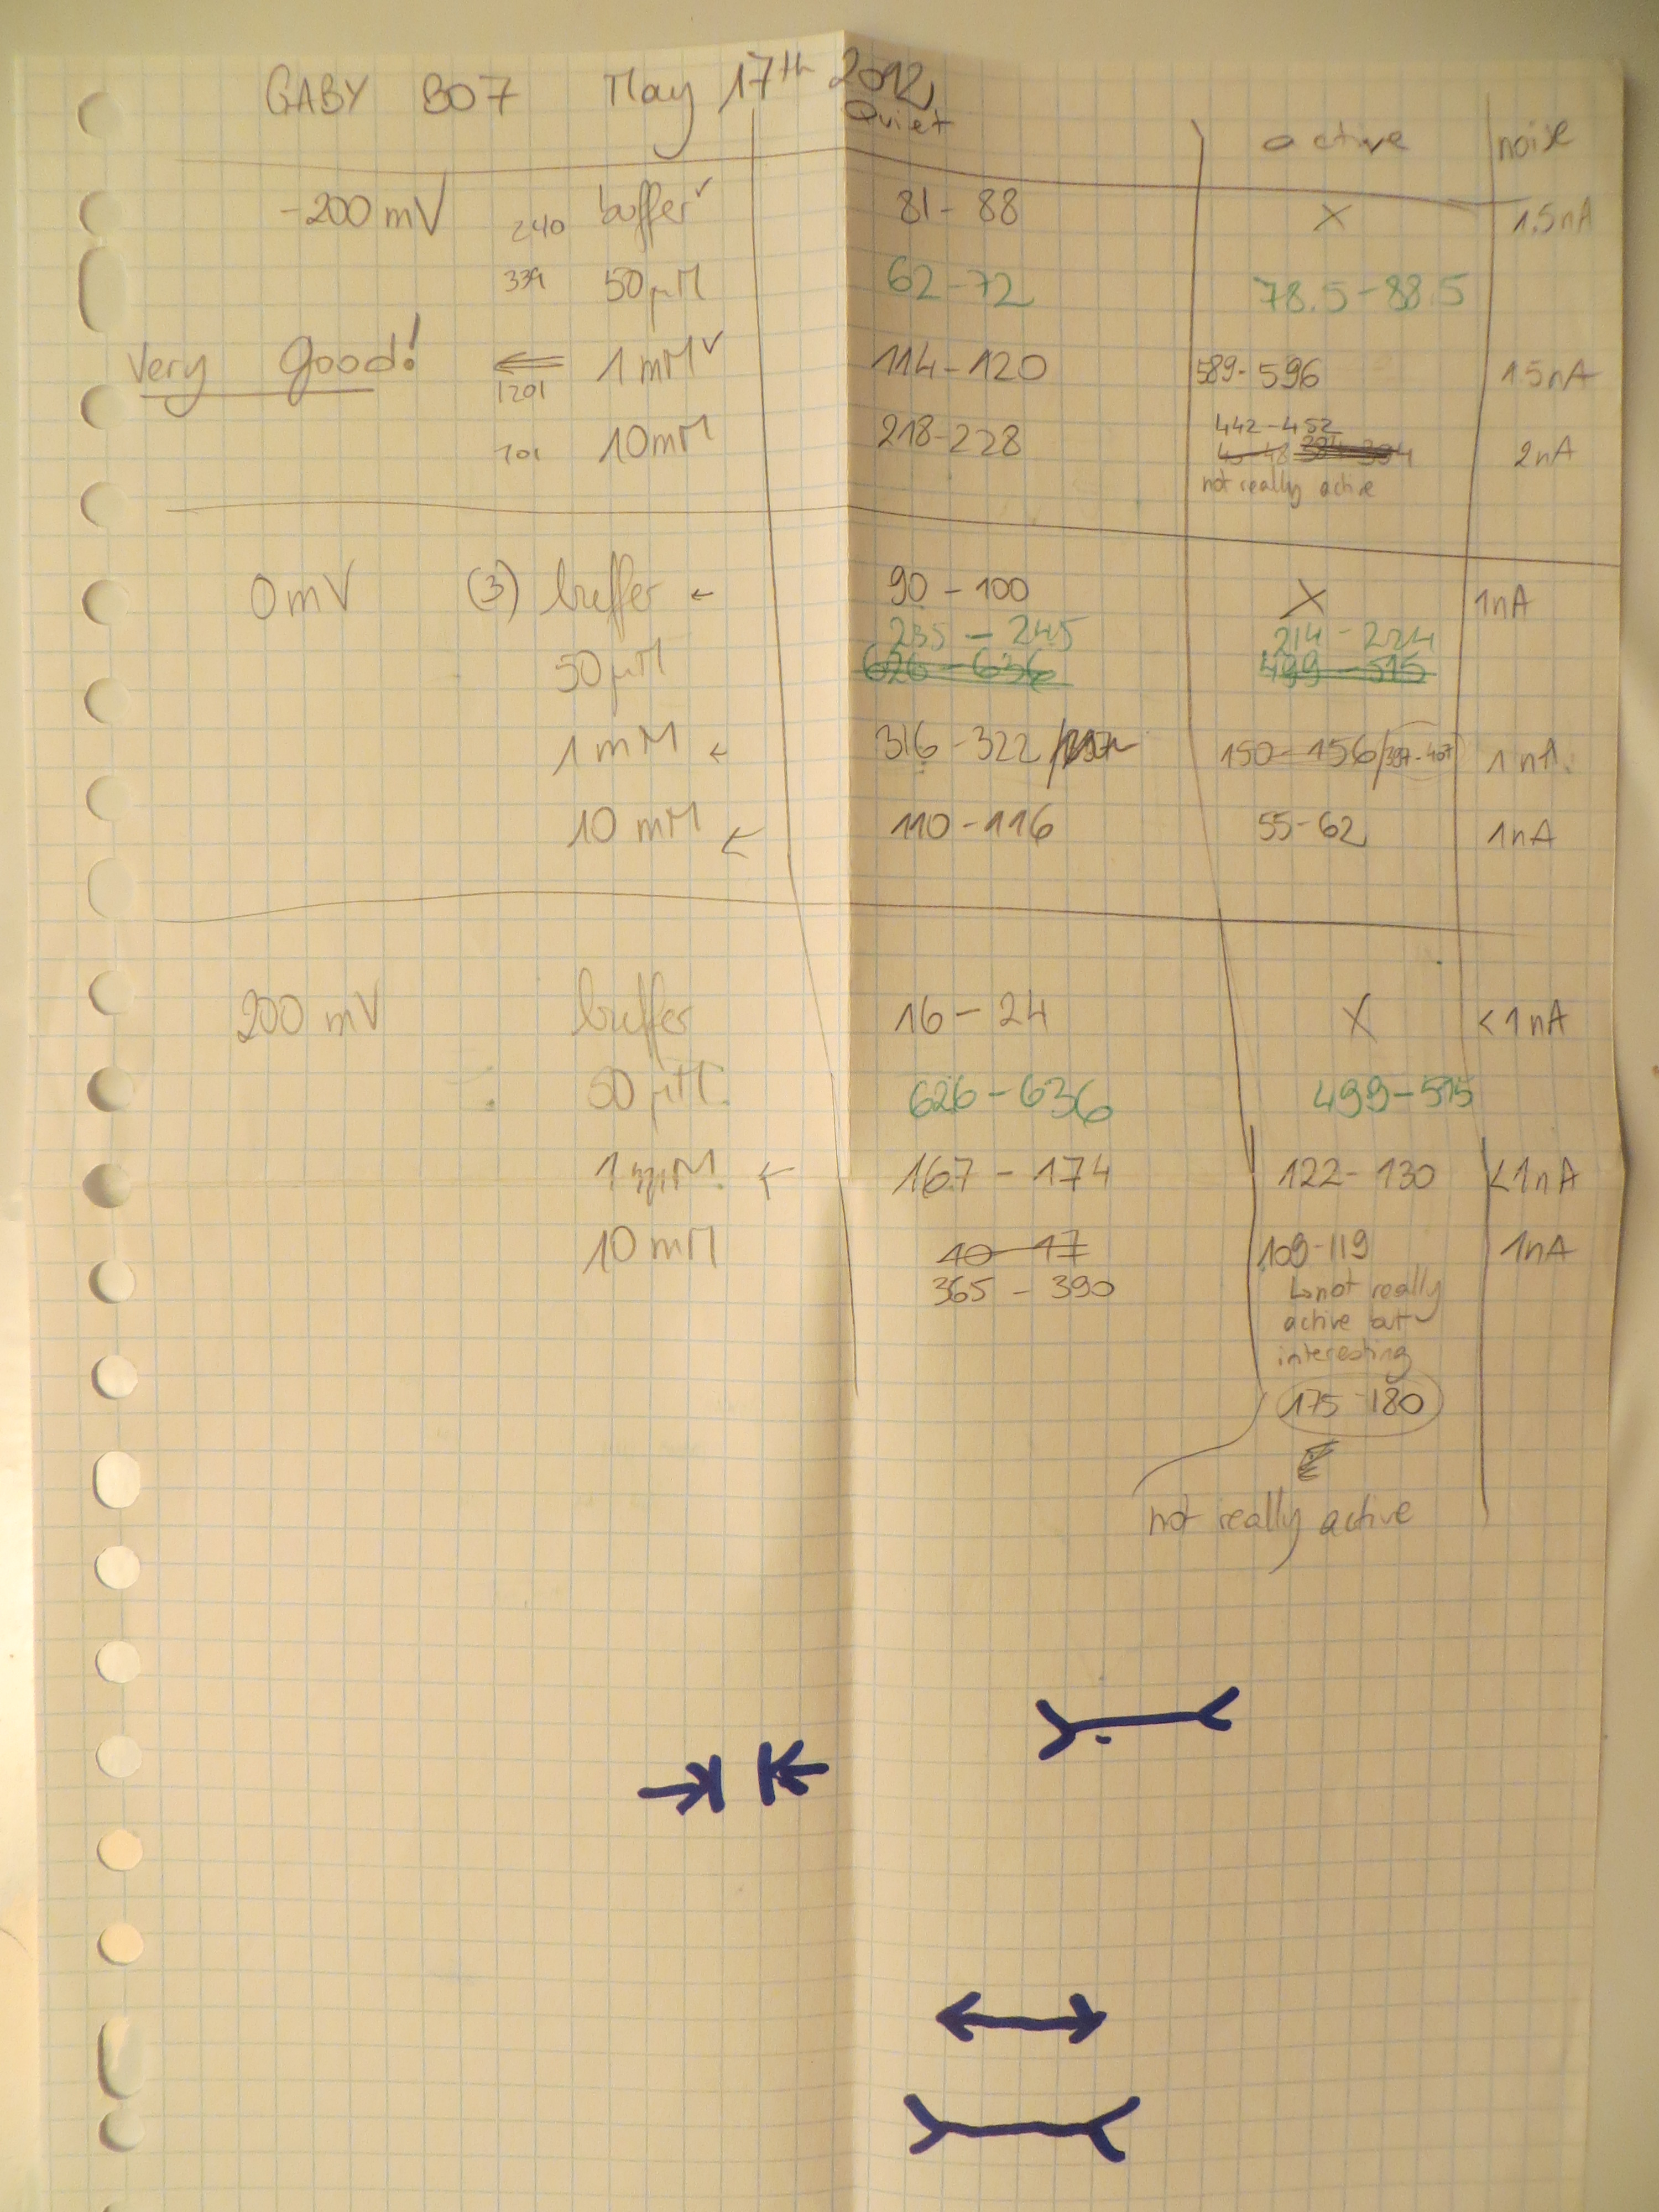 GABY 807 May 17th 2012
Quiet active noise
-200 mV 240 buffer ✓ 81 - 88 X 1.5nA
339 50 µM 62 - 72 78.5 - 88.5
Very good! ⇐ 1 mM ✓ 114 - 120 589 - 596 1.5nA
1201
442 - 452
701 10 mM 218 - 228 2nA
not really active
0 mV (3) buffer ← 90 - 100 X 1nA
235 - 245 214 - 224
50 µM 626 - 636 499 - 515
1 mM ← 316 - 322 / 150 - 156/397 - 407 1 nA
10 mM ← 110 - 116 55 - 62 1nA
200 mV buffer 16 - 24 X <1nA
50 µM 626 - 636 499 - 515
1 mM ← 167 - 174 122 - 130 <1nA
10 mM 10 - 17 109 - 119 1nA
365 - 390 ↳ not really
active but
interesting
175 - 180
not really active